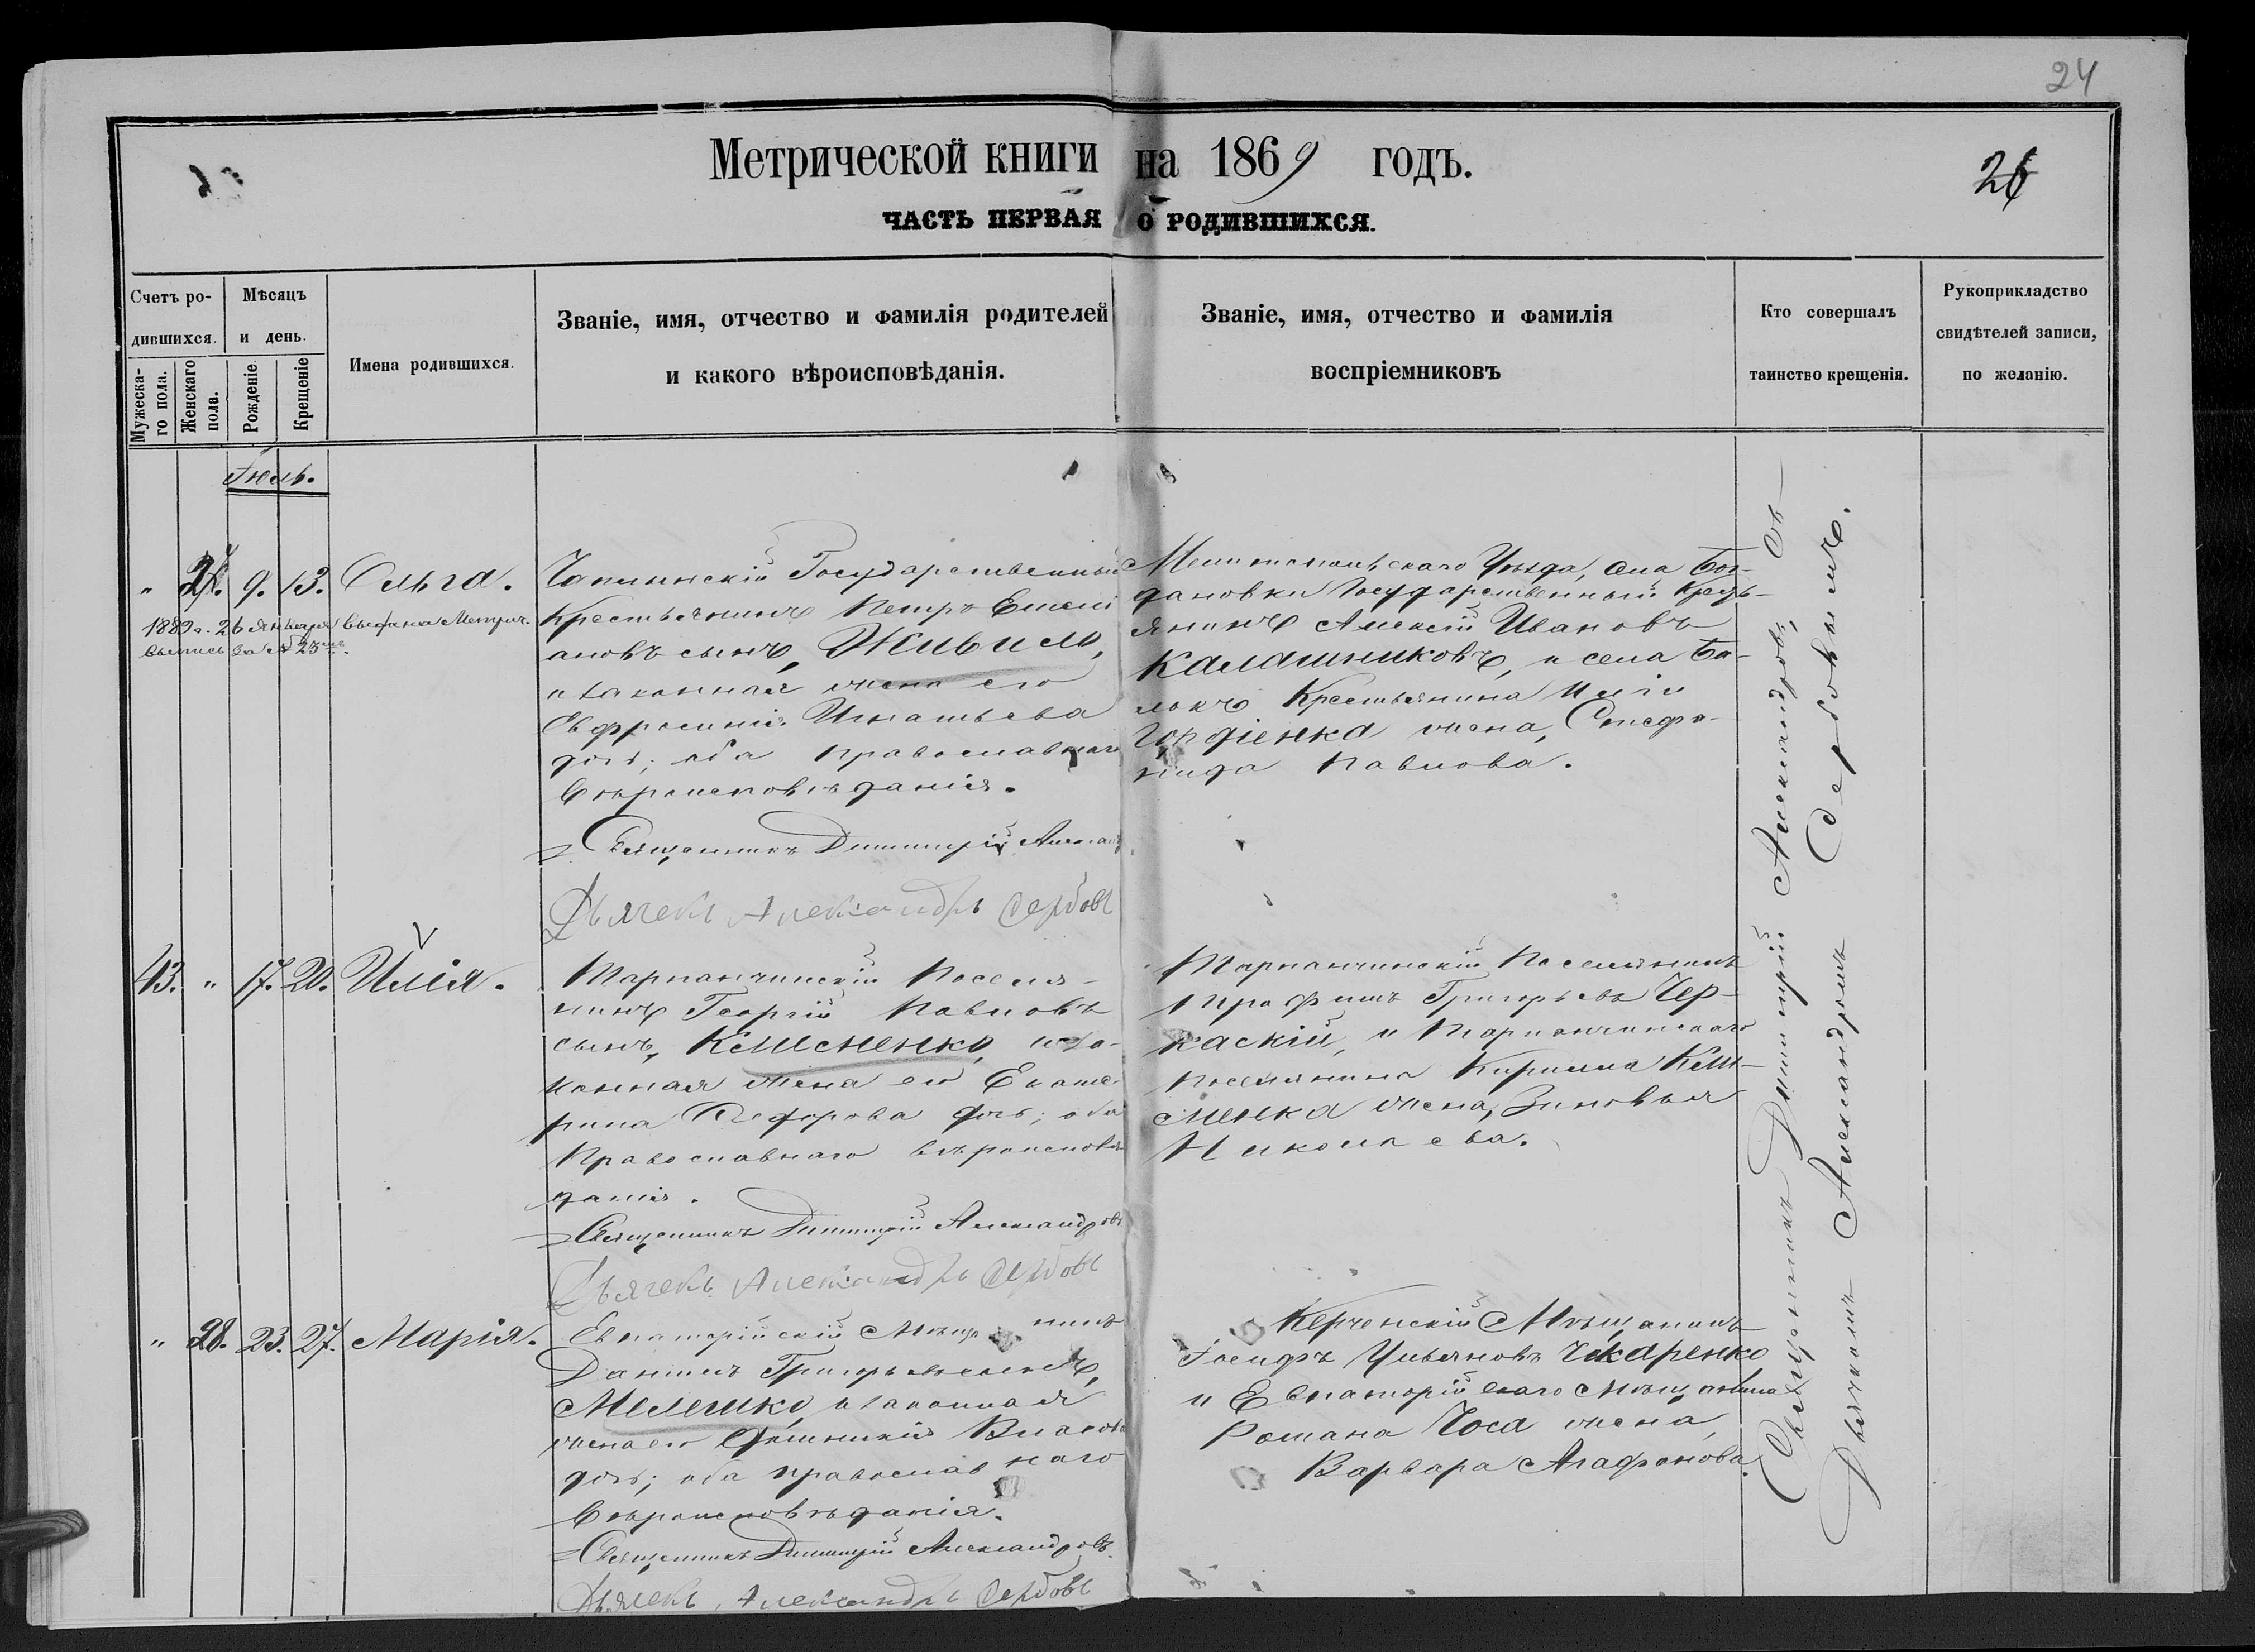 24
Метрической книги на 1869 годъ.
26
ЧАСТЬ ПЕРВАЯ О РОДИВШИХСЯ.
Счетъ родившихся.
Мужескаго пола.
Женскаго пола.
Мѣсяцъ и день.
Рожденіе.
Крещеніе
Имена родившихся.
Званіе, имя, отчество и фамилія родителей
и какого вѣроисповѣданія.
Званіе, имя, отчество и фамилія
воспріемниковъ
Кто совершалъ
таинство крещенія.
Рукоприкладство
свидѣтелей записи,
по желанію.
Іюль.
" 27. 9. 13. Ольга.
1889 г. 26 Января выдана Метрич.
выпись за № 25
Государственный
Крестьянинъ Петръ Емелі
ановъ сынъ, Живило,
и законная жена его
Евфросинія Игнатьева
дочь; оба православнаго
вѣроисповѣданія.
Священникъ Димитрій Александ
Дьячекъ Александръ Сербовъ
Мелитопольскаго Уѣзда, села Бог-
дановки Государственный Кресть-
янинъ Алексій Ивановъ
Калашниковъ, и села Ба-
локъ Крестьянина Иліи
Гордіенка жена, Стефа-
нида Павлова.
43. " 17. 20. Илія.
Тарханчинскій Поселя-
нинъ Георгій Павловъ
сынъ, Клименко, и за-
конная жена его Екате-
рина Ѳедорова дочь; оба
Православнаго вѣроисповѣ
данія.
Священникъ Димитрій Александровъ
Дьячекъ Александръ Сербовъ
Тарханчинскій Поселянинъ
Трофимъ Григорьевъ Чер-
каскій, и Тарханчинскаго
поселянина Кирилла Кли-
менка жена, Зиновья
Николаева.
" 28. 23. 27. Марія.
Евпаторійскій Мѣщанинъ
Даніилъ Григорьевъ сынъ,
Мелешко, и законная
жена его Власова
дочь; оба православнаго
вѣроисповѣданія.
Священникъ Димитрій Александровъ.
Дьячекъ Александръ Сербовъ
Керченскій Мѣщанинъ
Іосифъ Ульяновъ Чкаренко
и Евпаторійскаго Мѣщанина
Романа Чоса жена,
Варвара Агафонова.
Священникъ Димитрій Александровъ, Съ
Дьячкомъ Александромъ Сербовымъ.